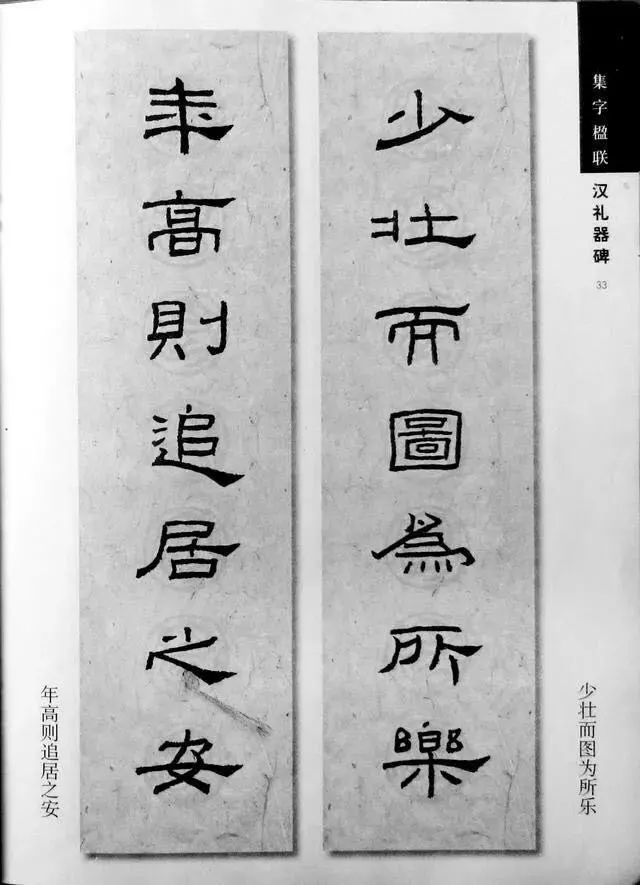 集字楹联
汉礼器碑
33
少壮而圖為所樂
年高則追居之安
少壮而图为所乐
年高则追居之安